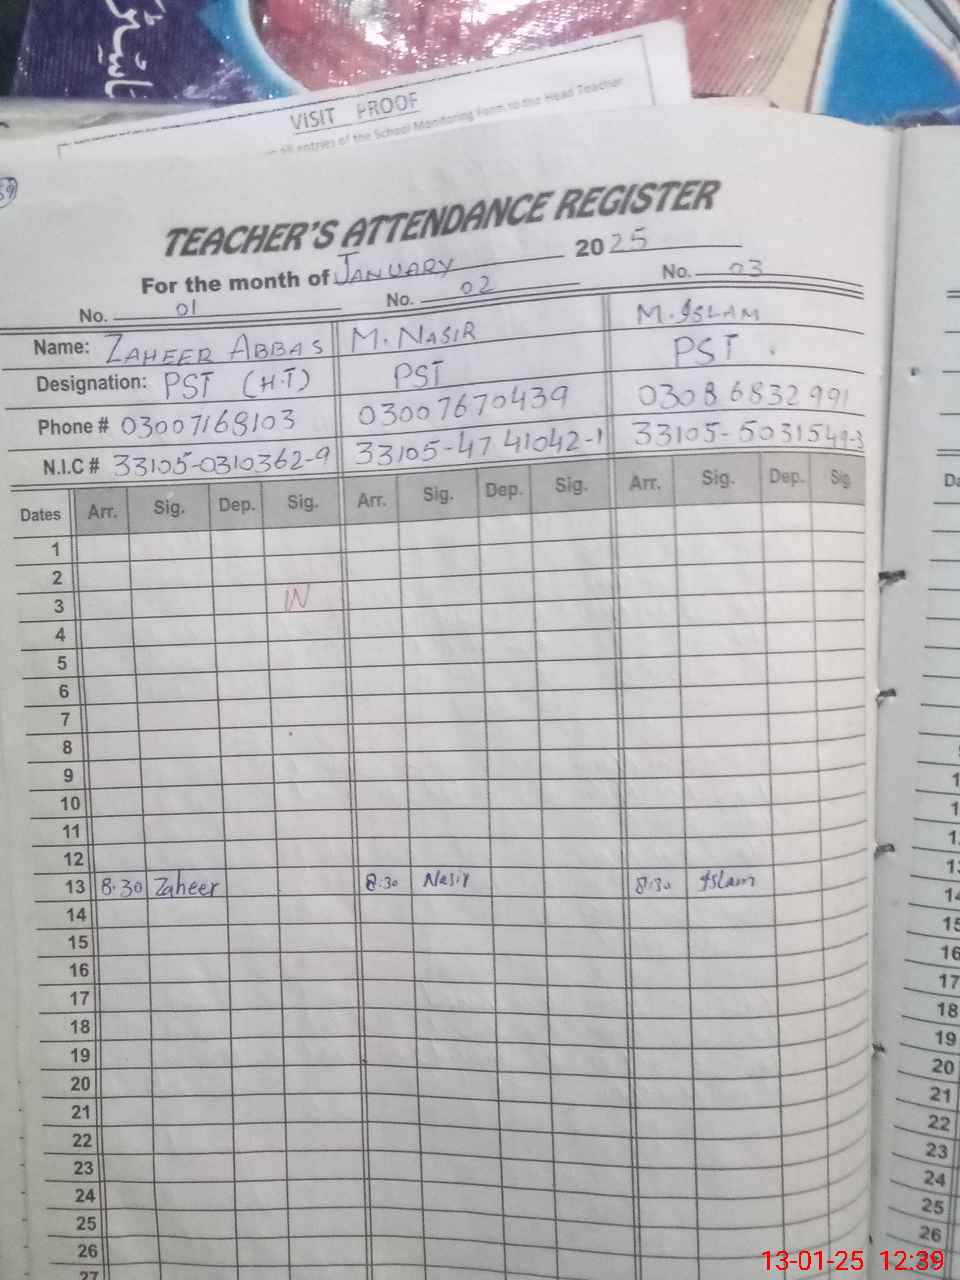 VISIT PROOF
all entries of the School Monitoring Form to the Head Teacher
59
TEACHER'S ATTENDANCE REGISTER
For the month of JANUARY 2025
No. 01 No. 02 No. 03
Name: ZAHEER ABBAS M. NASIR M. ISLAM
Designation: PST (H.T) PST PST.
Phone # 03007169103 03007670439 03086832991
N.I.C # 33105-0310362-9 33105-4741042-1 33105-5031549-3
Dates Arr. Sig. Dep. Sig. Arr. Sig. Dep. Sig. Arr. Sig. Dep. Sig.
1
2
3
4
5
6
7
8
9
10
11
12
13 8.30 Zaheer 8:30 Nasir 8:30 Islam
14
15
16
17
18
19
20
21
22
23
24
25
26
27
13-01-25 12:39